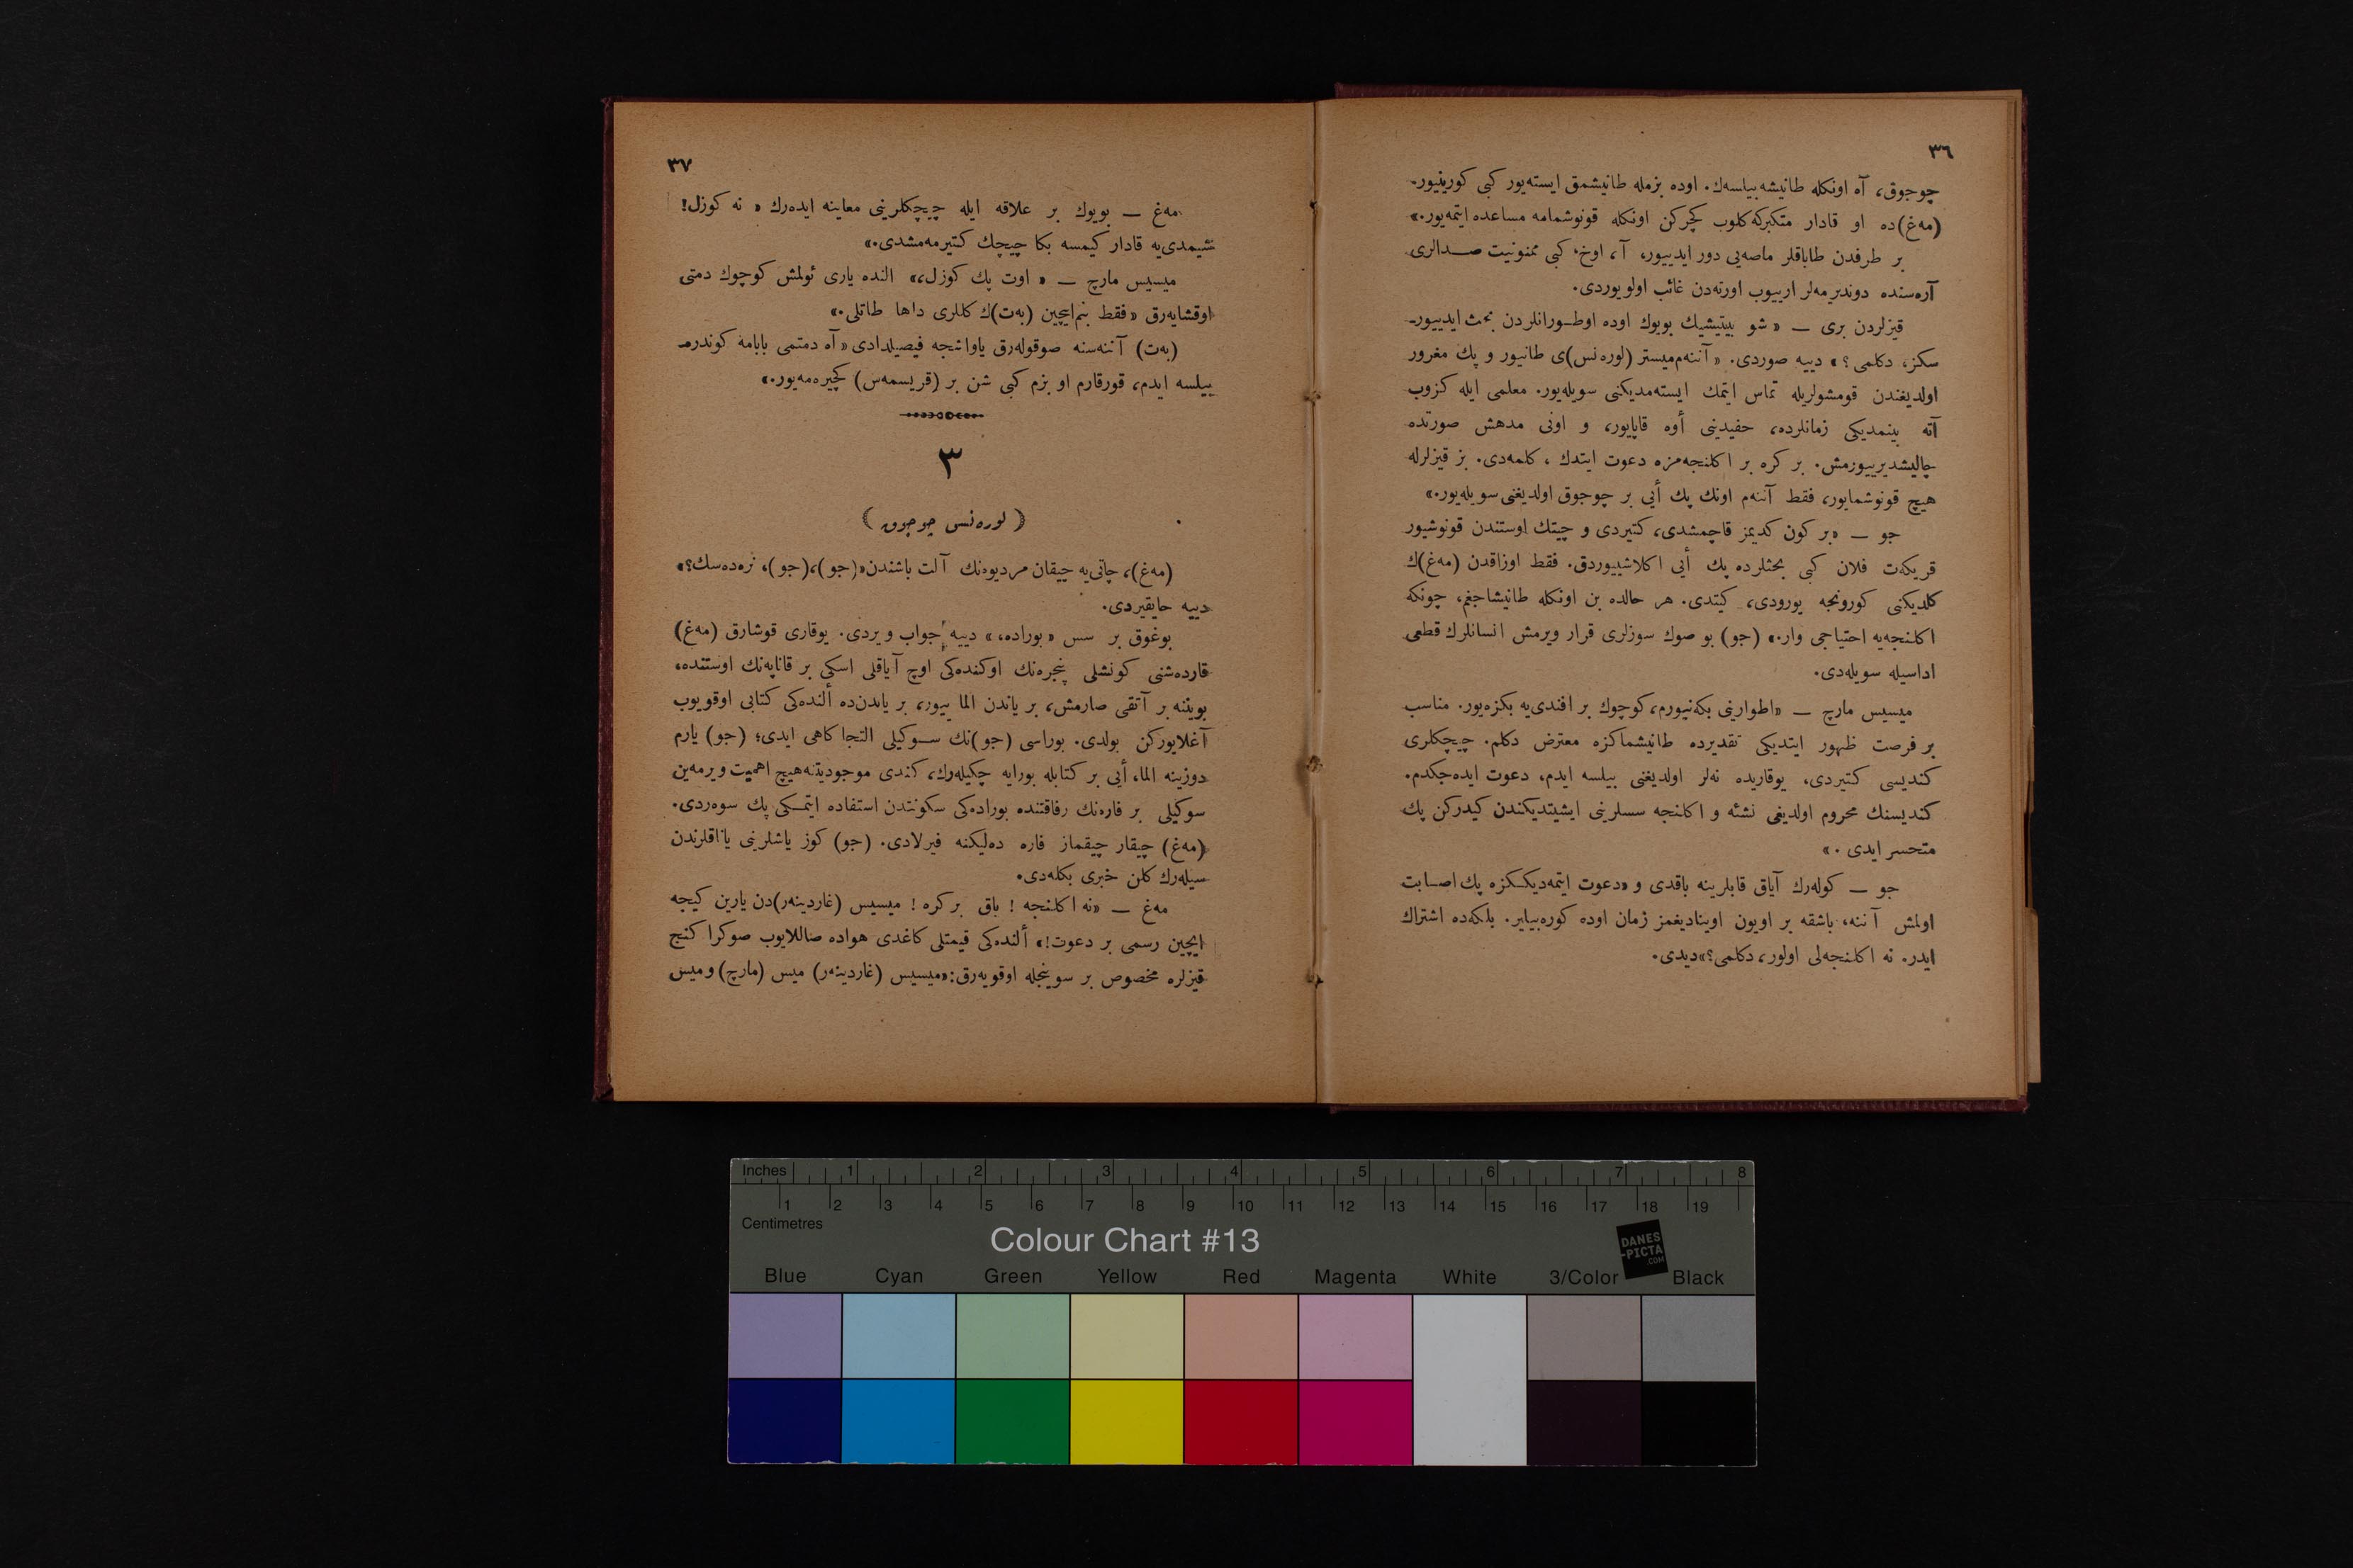 ٣٦
چوجوق، آه اونكله طانيشه بيلسه‌ك. اوده بزمله طانيشمق ايسته‌يور كبى كورينيور.
(مه‌غ)ده او قادار متكبركه كلوب كچركن اونكله قونوشمامه مساعده ايتمه‌يور.»
بر طرفدن طاباقلر ماصه‌يى دور ايدييور، آ، اوخ، كبى ممنونيت صدالرى
آره‌سنده دوندیرمه‌لر ارييوب اورته‌دن غائب اولويوردى.
قيزلردن برى — « شو بيتيشيك بويوك اوده اوطورانلردن بحث ايدييور-
سكز، دكلمى؟» دييه صوردى. « آننه‌م ميستر (لوره‌نس)ى طانيور و پك مغرور
اولديغندن قومشولريله تماس ايتمك ايسته‌مديكنى سويله‌يور. معلمى ايله كزوب
آته بينمديكى زمانلرده، حفيدينى أوه قاپايور، و اونى مدهش صورتده
چاليشديرييورمش. بر كره بر اكلنجه‌مزه دعوت ايتدك، كلمه‌دى. بز قيزلرله
هيچ قونوشمايور، فقط آننه‌م اونك پك أيى بر چوجوق اولديغنى سويله‌يور.»
جو — «بر كون كديمز قاچمشدى، كتيردى و چيتك اوستندن قونوشيور
قريكه‌ت فلان كبى بحثلرده پك أيى اكلاشييوردق. فقط اوزاقدن (مه‌غ)ك
كلديكنى كورونجه يورودى، كيتدى. هر حالده بن اونكله طانيشاجغم، چونكه
اكلنجه‌يه احتياجى وار.» (جو) بو صوك سوزلرى قرار ويرمش انسانلرك قطعى
اداسيله سويله‌دى.
ميسيس مارچ — «اطوارينى بكه‌نيورم، كوچوك بر افندى‌يه بكزه‌يور. مناسب
بر فرصت ظهور ايتديكى تقديرده طانيشماكزه معترض دكلم. چيچكلرى
كنديسى كتيردى، يوقاريده نه‌لر اولديغنى بيلسه ايدم، دعوت ايده‌جكدم.
كنديسنك محروم اولديغى نشئه و اكلنجه سسلرينى ايشيتديكندن كيدركن پك
متحسر ايدى.»
جو — كوله‌رك آياق قابلرينه باقدى و «دعوت ايتمه‌ديككزه پك اصابت
اولمش آننه، باشقه بر اويون اويناديغمز زمان اوده كوره‌بيلير. بلكه‌ده اشتراك
ايدر. نه اكلنجه‌لى اولور، دكلمى؟» ديدى.
٣٧
مه‌غ — بويوك بر علاقه ايله چيچكلرينى معاينه ايده‌رك « نه كوزل!
شيمدى‌يه قادار كيمسه بكا چيچك كتيرمه‌مشدى.»
ميسيس مارچ — « اوت پك كوزل،» النده يارى ئولمش كوچوك دمتى
اوقشايه‌رق «فقط بنم‌ايچين (به‌ت)ك كللرى داها طاتلى.»
(به‌ت) آننه‌سنه صوقوله‌رق ياواشجه فيصيلدادى «آه دمتمى بابامه كوندره-
بيلسه ايدم، قورقارم او بزم كبى شن بر (قريسمه‌س) كچيره‌مه‌يور.»
٣
(لوره‌نس چوجوق)
(مه‌غ)، چاتى‌يه چيقان مرديوه‌نك آلت باشندن «(جو)،(جو)، نره‌ده‌سك؟»
دييه حايقيردى.
بوغوق بر سس «بوراده،» دييه جواب ويردى. يوقارى قوشارق (مه‌غ)
قارده‌شنى كونشلى پنجره‌نك اوكنده‌كى اوچ آياقلى اسكى بر قاناپه‌نك اوستنده،
بويننه بر آتقى صارمش، بر ياندن الما ييور، بر ياندن‌ده ألنده‌كى كتابى اوقويوب
آغلايوركن بولدى. بوراسى (جو)نك سوكيلى التجا كاهى ايدى؛ (جو) يارم
دوزينه الما، أيى بر كتابله بورايه چكيله‌رك، كندى موجوديتنه هيچ اهميت ويرمه‌ين
سوكيلى بر فاره‌نك رفاقتنده بوراده‌كى سكونتدن استفاده ايتمكى پك سوه‌ردى.
(مه‌غ) چيقار چيقماز فاره ده‌ليكنه فيرلادى. (جو) كوز ياشلرينى ياناقلرندن
سيله‌رك كلن خبرى بكله‌دى.
مه‌غ — «نه اكلنجه! باق بر كره! ميسيس (غاردينه‌ر)دن يارين كيجه
ايچين رسمى بر دعوت!» ألنده‌كى قيمتلى كاغدى هواده صاللايوب صوكرا كنج
قيزلره مخصوص بر سوينجله اوقويه‌رق: «ميسيس (غاردينه‌ر) ميس (مارچ) وميس
Inches 1 2 3 4 5 6 7 8
1 2 3 4 5 6 7 8 9 10 11 12 13 14 15 16 17 18 19
Centimetres
Colour Chart #13
DANES-PICTA.COM
Blue Cyan Green Yellow Red Magenta White 3/Color Black